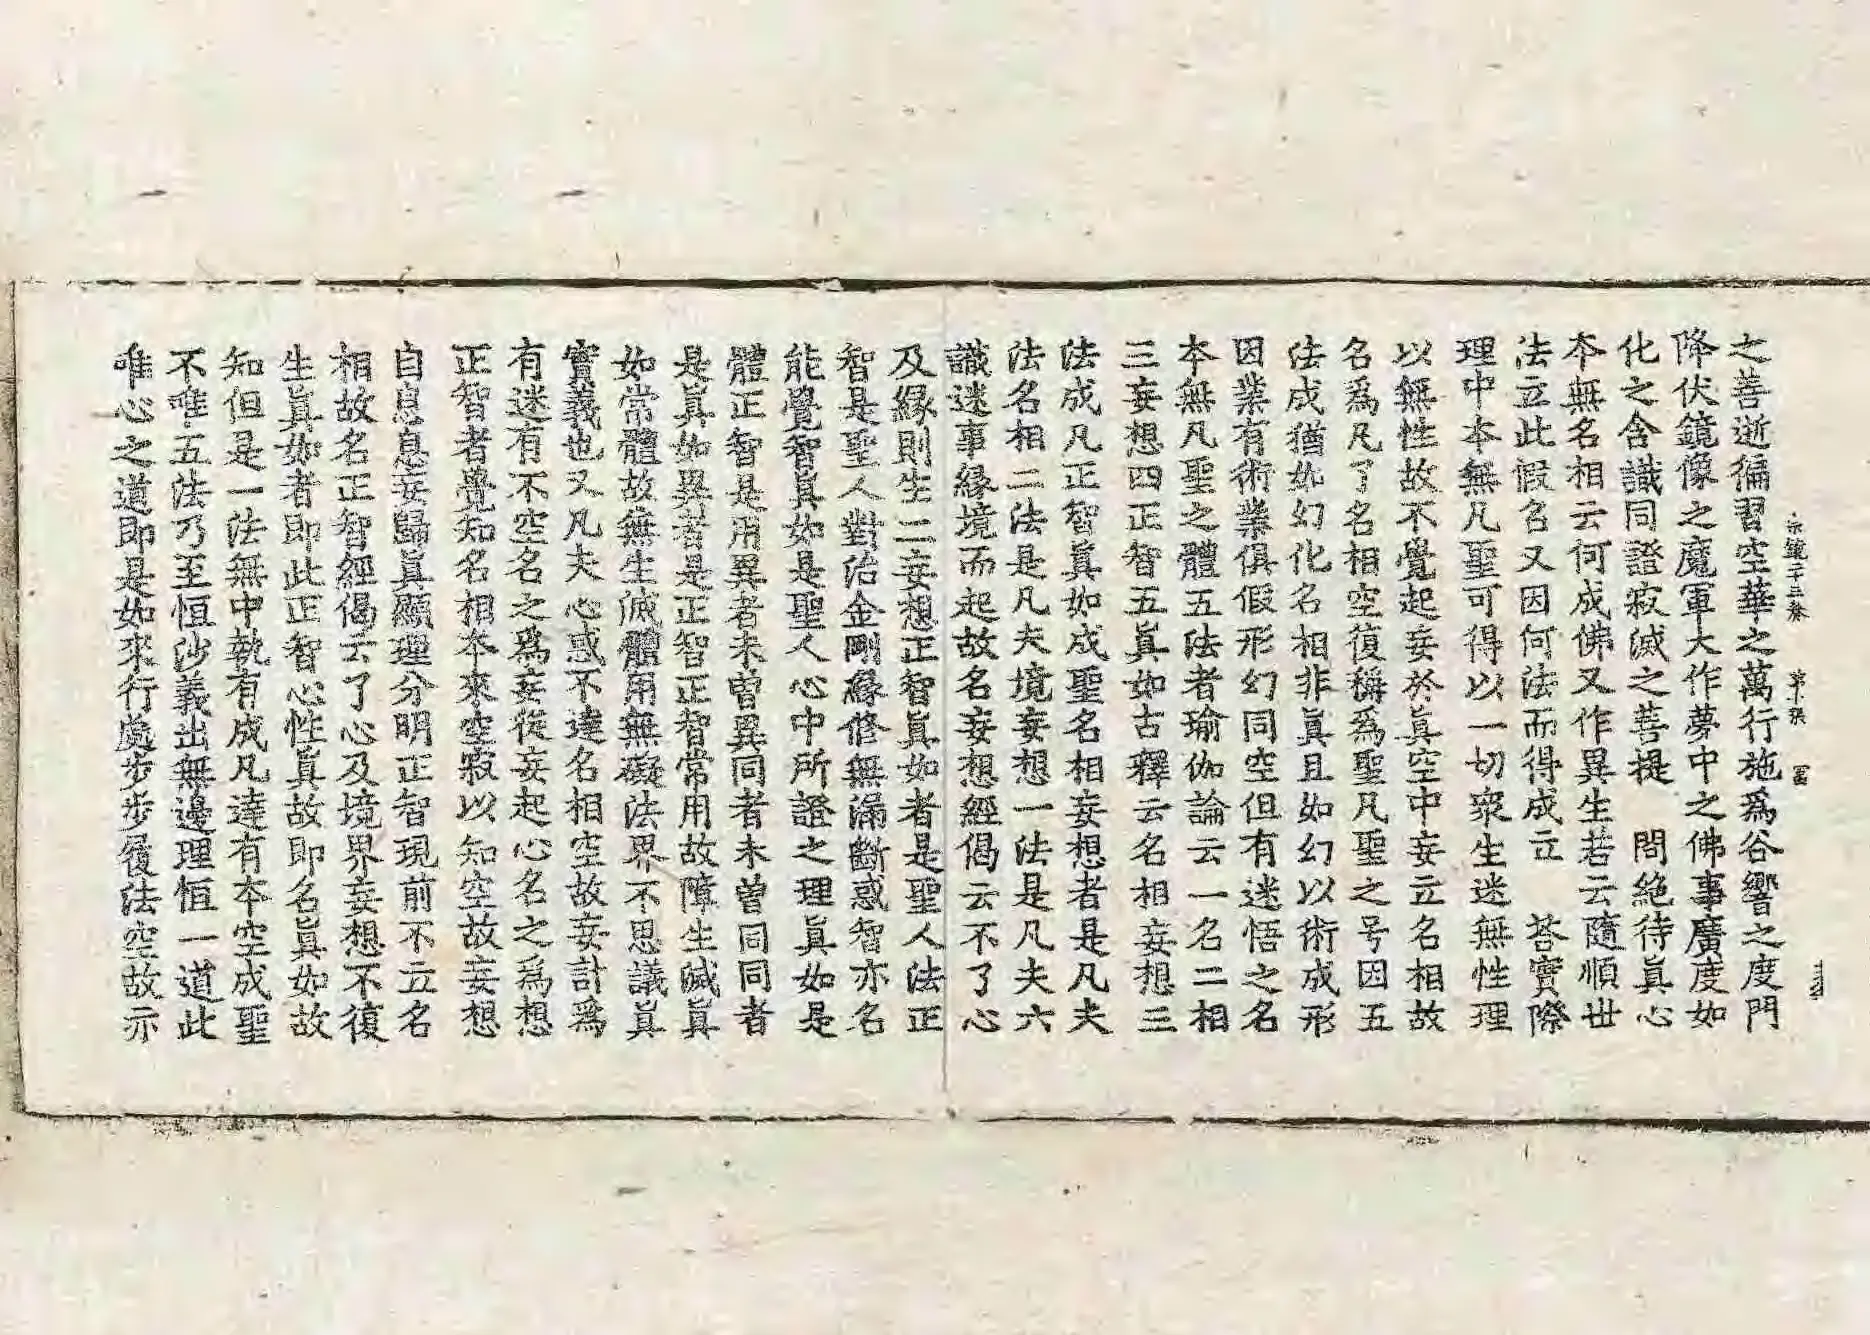 宗鏡二十三卷　第十張　冨
之善逝徧習空華之萬行施爲谷響之度門
降伏鏡像之魔軍大作夢中之佛事廣度如
化之含識同證寂滅之菩提　問絶待真心
本無名相云何成佛又作異生若云隨順世
法立此假名又因何法而得成立　荅實際
理中本無凡聖可得以一切衆生迷無性理
以無性故不覺起妄於真空中妄立名相故
名爲凡了名相空復稱爲聖凡聖之号因五
法成猶如幻化名相非真且如幻以術成形
因業有術業俱假形幻同空但有迷悟之名
本無凡聖之體五法者瑜伽論云一名二相
三妄想四正智五真如古釋云名相妄想三
法成凡正智真如成聖名相妄想者是凡夫
法名相二法是凡夫境妄想一法是凡夫六
識迷事縁境而起故名妄想經偈云不了心
及縁則生二妄想正智真如者是聖人法正
智是聖人對治金剛縁修無漏斷惑智亦名
能覺智真如是聖人心中所證之理眞如是
體正智是用異者未曾異同者未曾同同者
是眞如異者是正智正智常用故障生滅眞
如常體故無生滅體用無礙法界不思議眞
實義也又凡夫心惑不達名相空故妄計爲
有迷有不空名之爲妄從妄起心名之爲想
正智者覺知名相本來空寂以知空故妄想
自息息妄歸眞顯理分明正智現前不立名
相故名正智經偈云了心及境界妄想不復
生眞如者即此正智心性眞故即名眞如故
知但是一法無中執有成凡達有本空成聖
不唯五法乃至恒沙義出無邊理恒一道此
唯心之道即是如來行處步步履法空故示